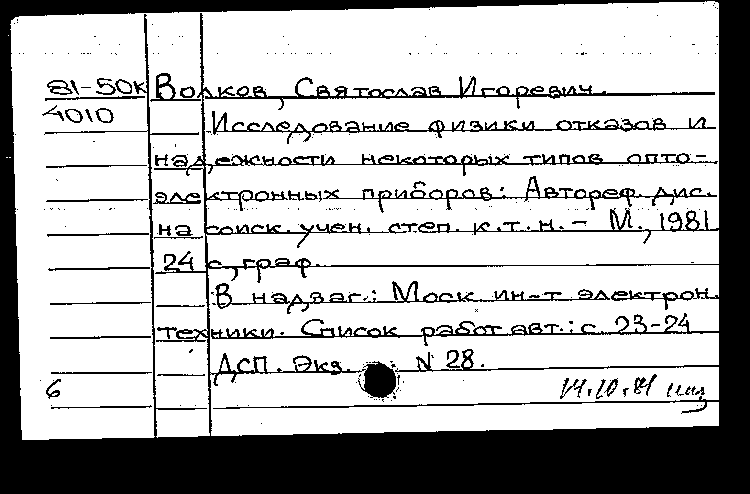 81-50к Волков, Святослав Игоревич.
4010 Исследование физики отказов и
надежности некоторых типов опто-
электронных приборов: Автореф. дис.
на соиск. учен. степ. к.т.н. - М., 1981
24 с, граф.
В надзаг.: Моск. ин-т электрон.
техники. Список работ авт.: с. 23-24
ДСП. Экз. N 28.
6 14.10.81